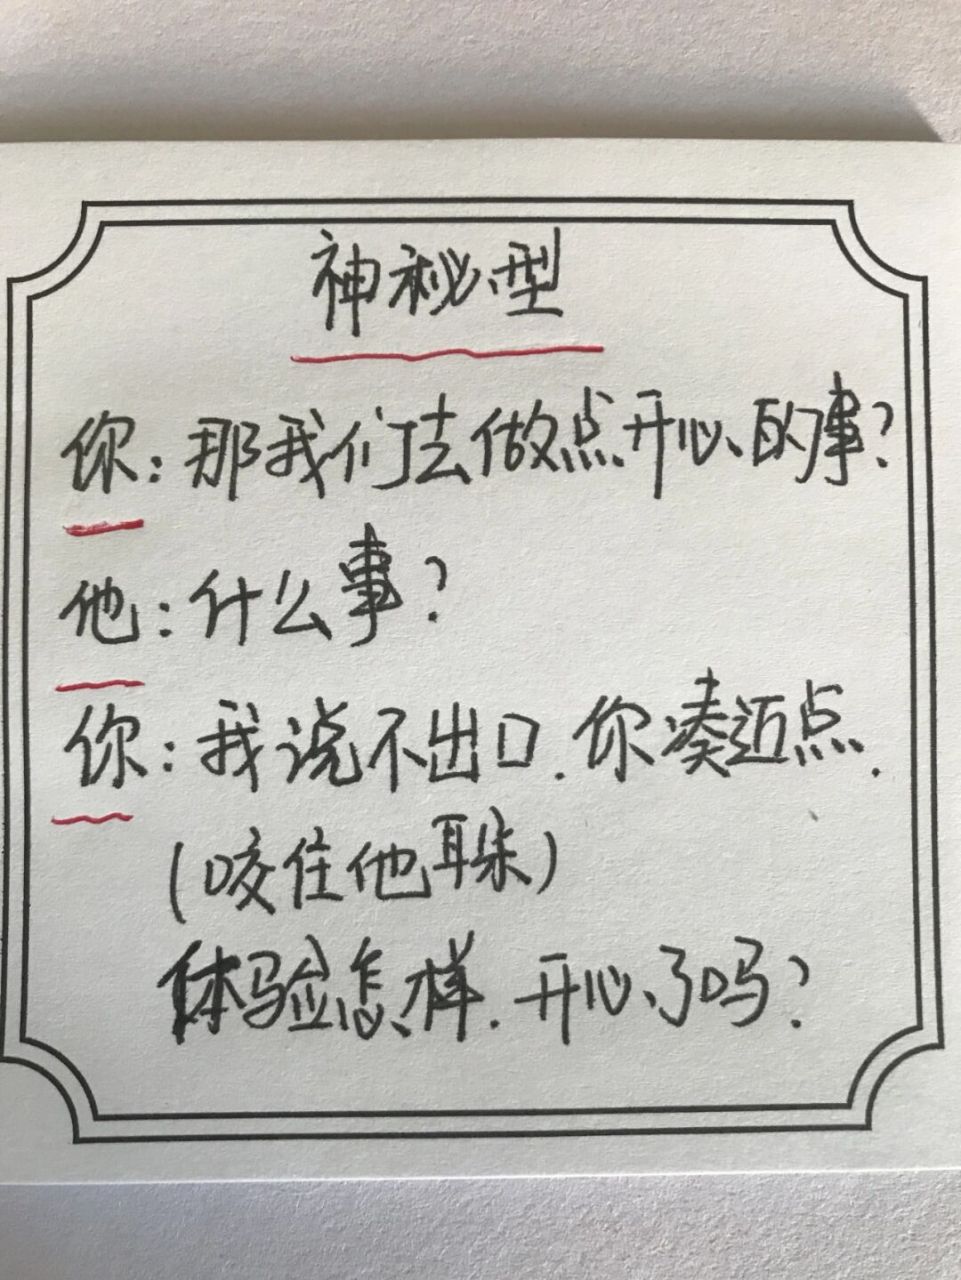 神秘型
你:那我们去做点开心的事?
他:什么事?
你:我说不出口.你凑近点.
(咬住他耳朵)
体验怎样.开心了吗?